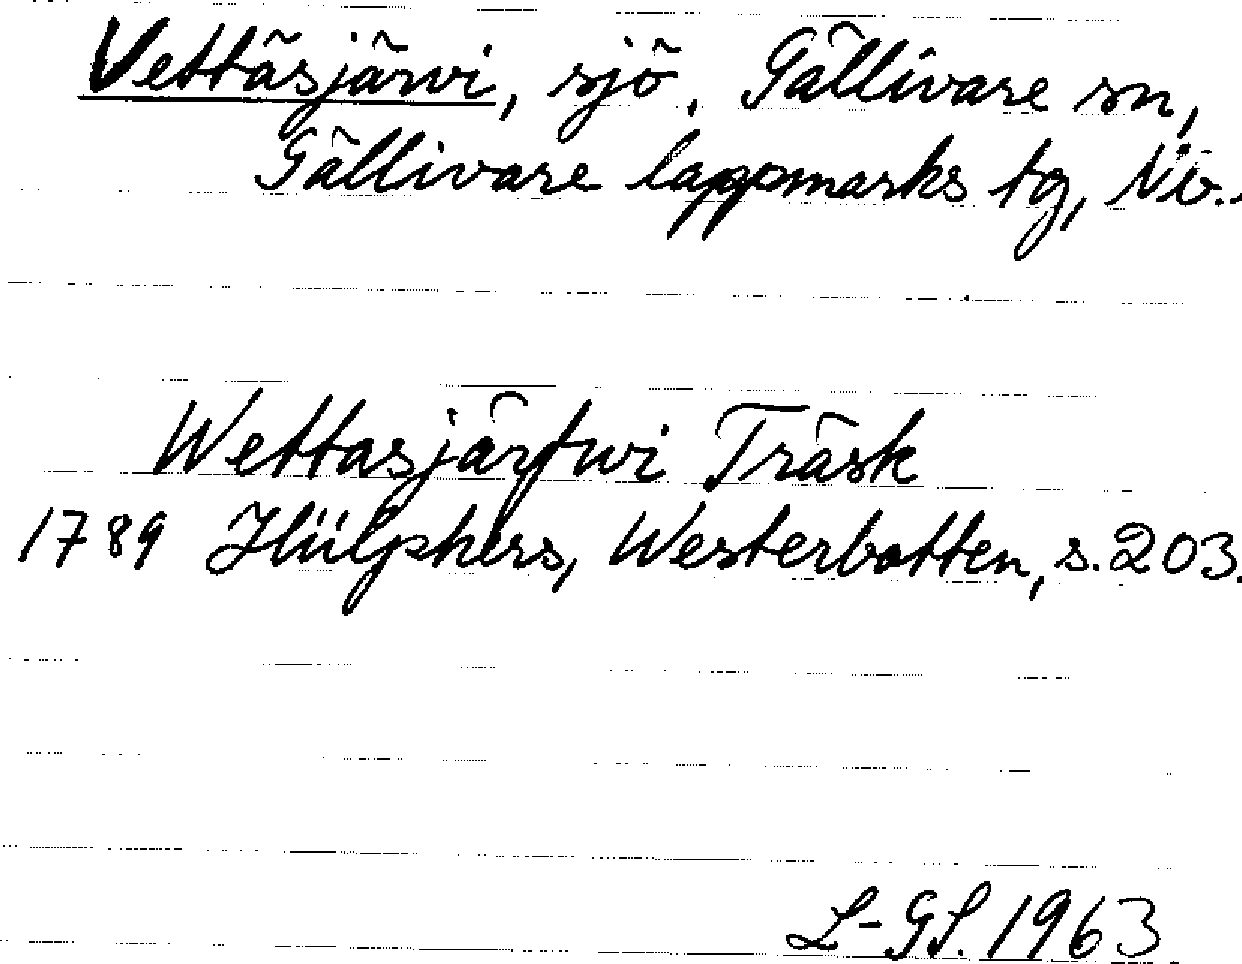 Vettäsjärvi, sjö, Gällivare sn,
Gällivare lappmarks tg, Nb.
Wettasjärfwi Träsk
1789 Hülphers, Westerbotten, s. 203.
L-GL. 1963